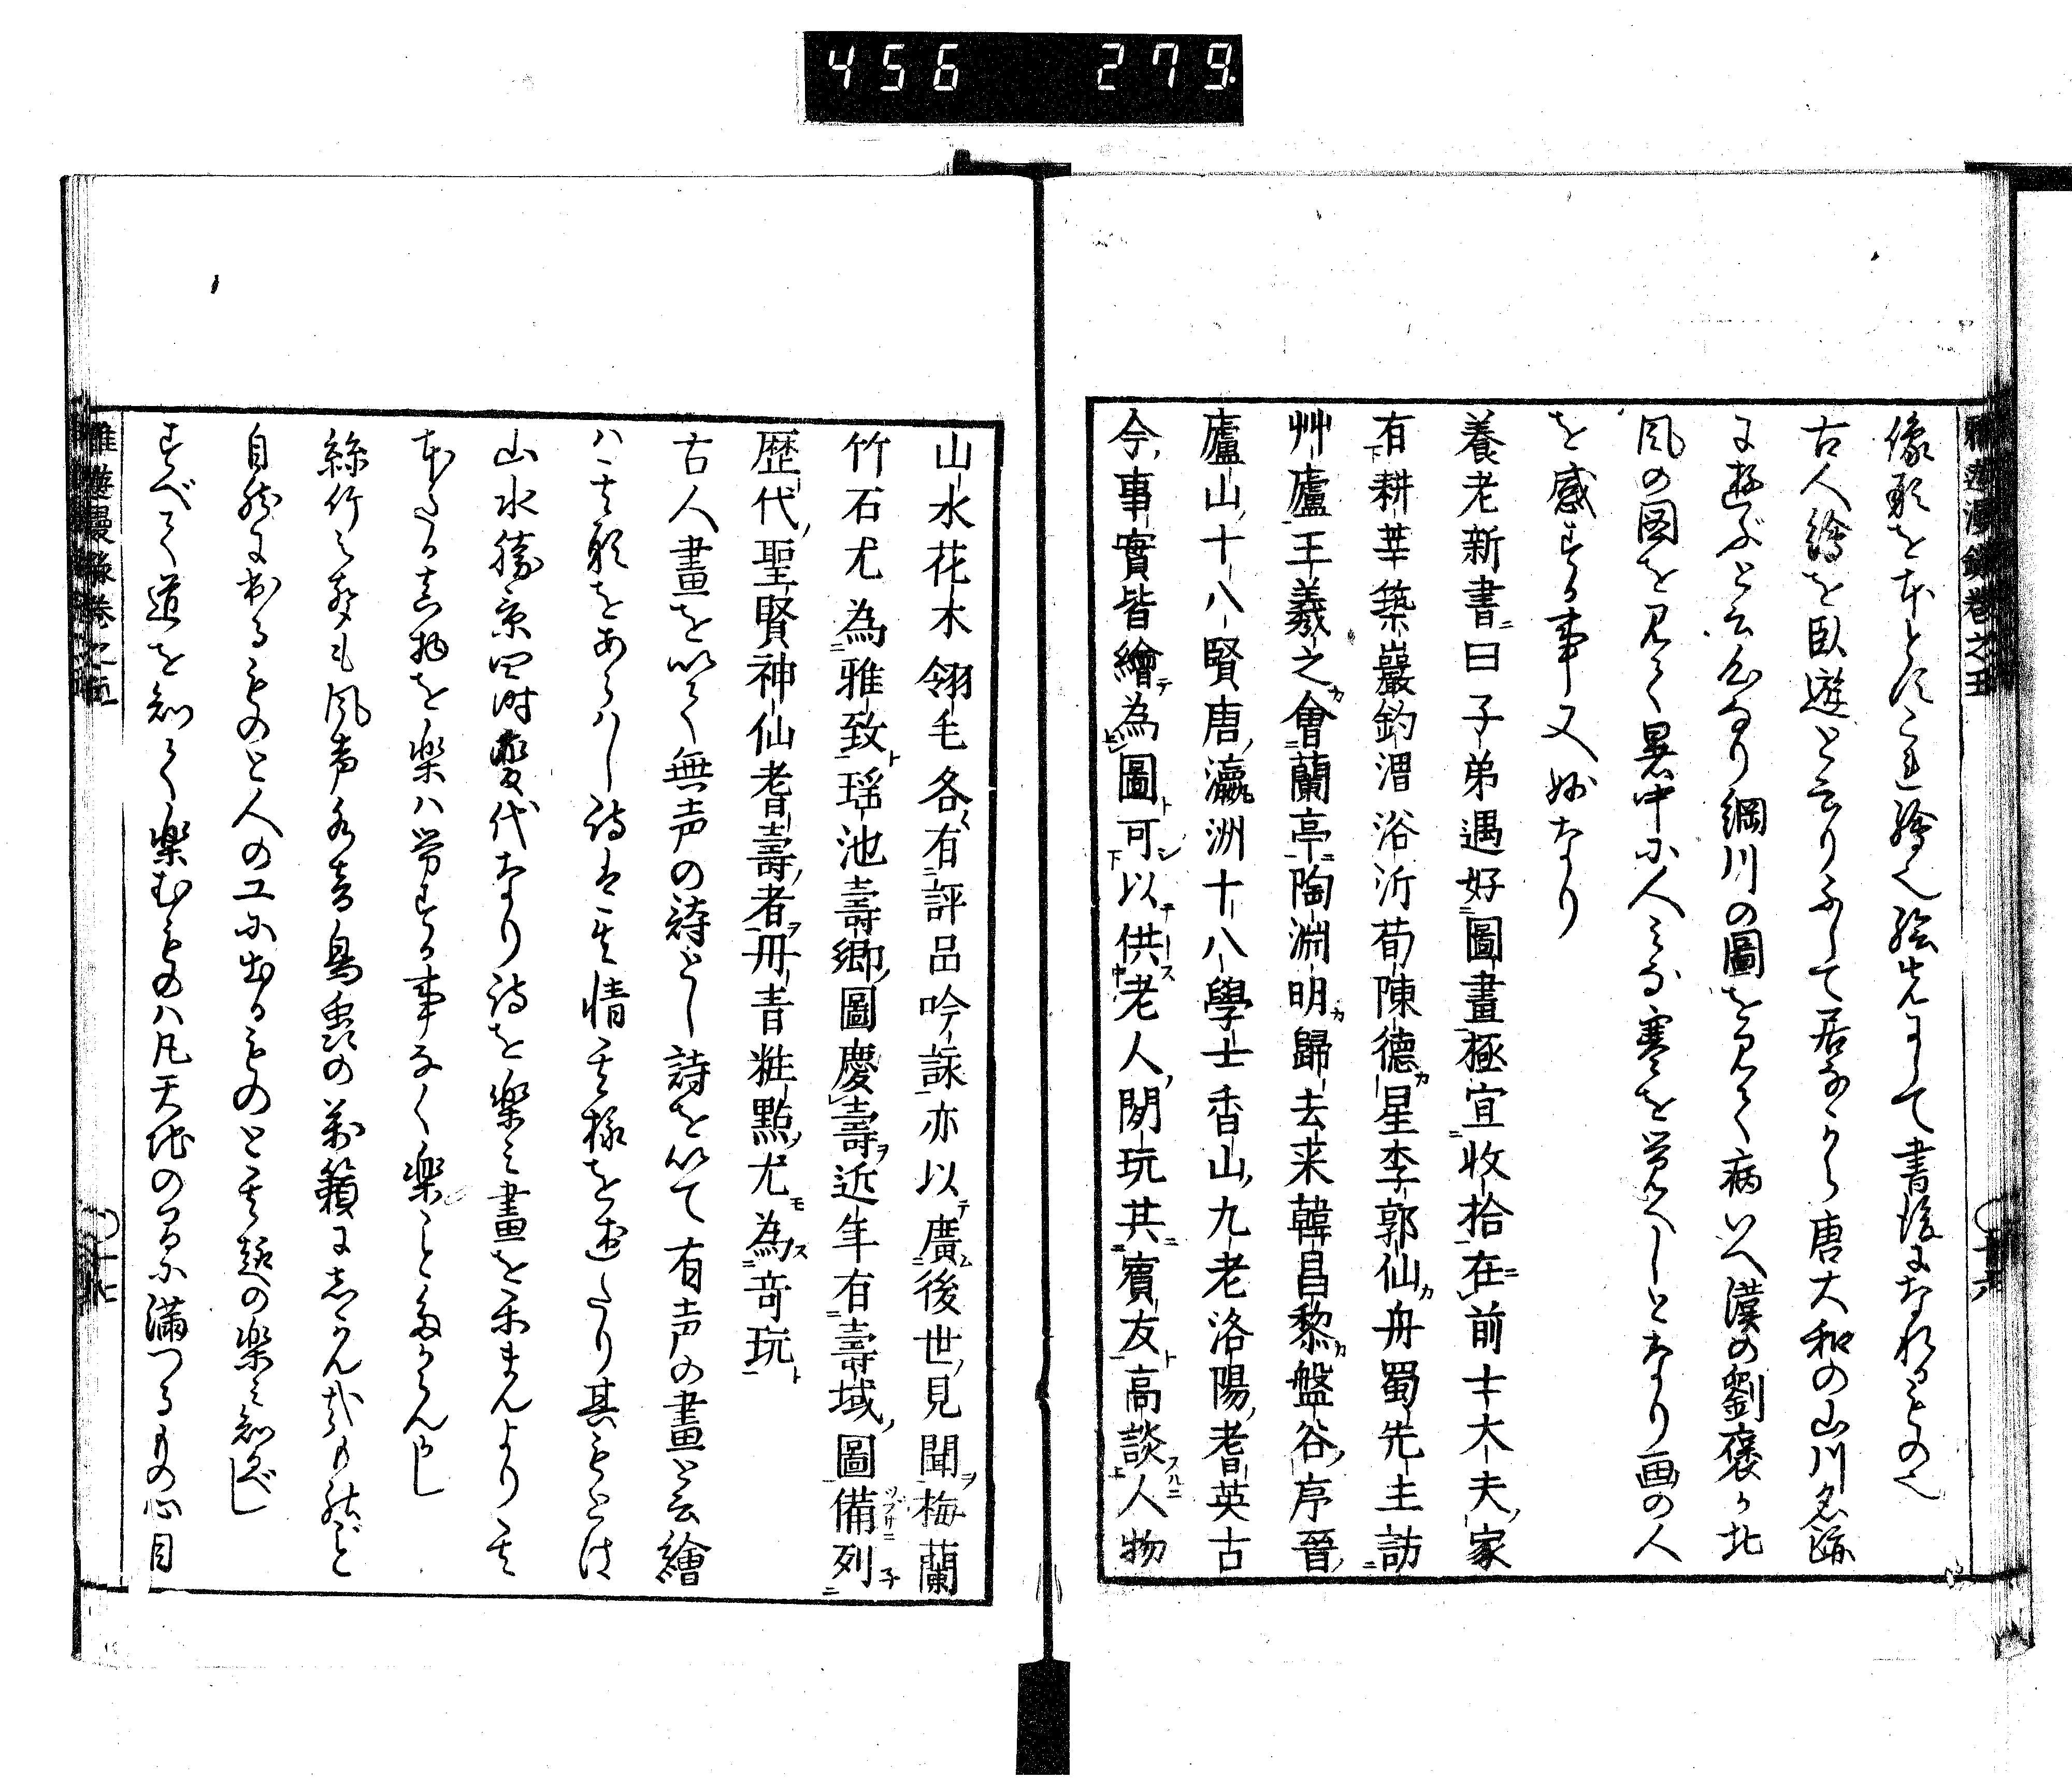 456 279.
雅遊漫錄卷之五
像形をもとに
古人繪を臥遊と云りふして居ながら唐大和の山川名跡
に遊ぶと云心なり輞川の圖を見て病いへ漢の劉褒が北
風の図を見て暑中に人みな寒を覚へしとなり画の人
を感ずる事又妙なり
養老新書曰子弟遇好圖畫極宜收拾在前士大夫家
有耕莘築巖釣渭浴沂荀陳德星李郭仙舟蜀先主訪
艸廬王羲之會蘭亭陶淵明歸去来韓昌黎盤谷序晉
廬山十八賢唐瀛洲十八學士香山九老洛陽耆英古
今事實皆繪為圖可以供老人閒玩共賓友高談人物
十六
山水花木翎毛各有評品吟詠亦以廣後世見聞梅蘭
竹石尤為雅致瑶池壽鄉圖慶壽近年有壽域圖備列
歷代聖賢神仙耆壽者丹青粧點尤為竒玩
古人畫を以て無声の詩とし詩を以て有声の畫と云繪
ハ其形をあらハし詩は其情其様を述たり其もとは
山水勝景四時變代なり詩を楽み畫を楽まんより其
もとたる真物を楽ハ労する事なく楽こと多からんかし
絲竹之声も風声水音鳥蟲の萬籟に志かん哉も然ど
自然に出るものと人の工に出るものと其趣の楽み知べし
すべて道を知て楽むものハ凡天地の间に満つるもの心目
雅遊漫錄卷之五
十七